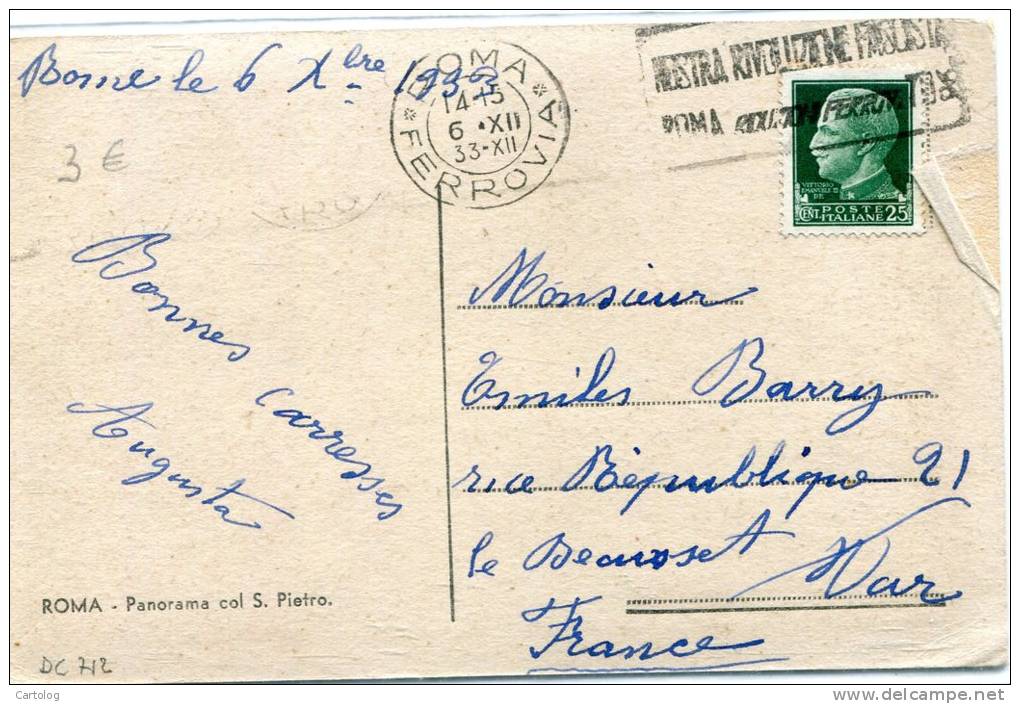 Rome le 6 Xbre 1933
ROMA
14-15
6 · XII
33-XII
FERROVIA
MOSTRA RIVOLUZIONE FASCISTA
ROMA RIDUZIONI FERROV.
VITTORIO
EMANUELE III
RE
POSTE
CENT. ITALIANE 25
3 €
Bonnes
carresses
Augusta
Monsieur
Emiles Barry
rue République 21
le Beausset
Var
France
ROMA - Panorama col S. Pietro.
DC 712
Cartolog
delcampe.net